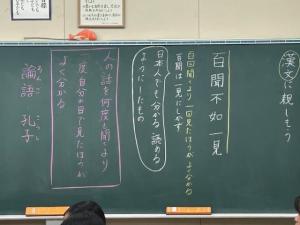 漢文に親しもう
百聞不如一見
百回聞くより一回見たほうがよく分かる
百聞は一見にしかず
日本人でも分かる、読める
ようにしたもの
人の話を何度も聞くより
一度自分の目で見たほうが
よく分かる
論語 孔子
ろんご こうし